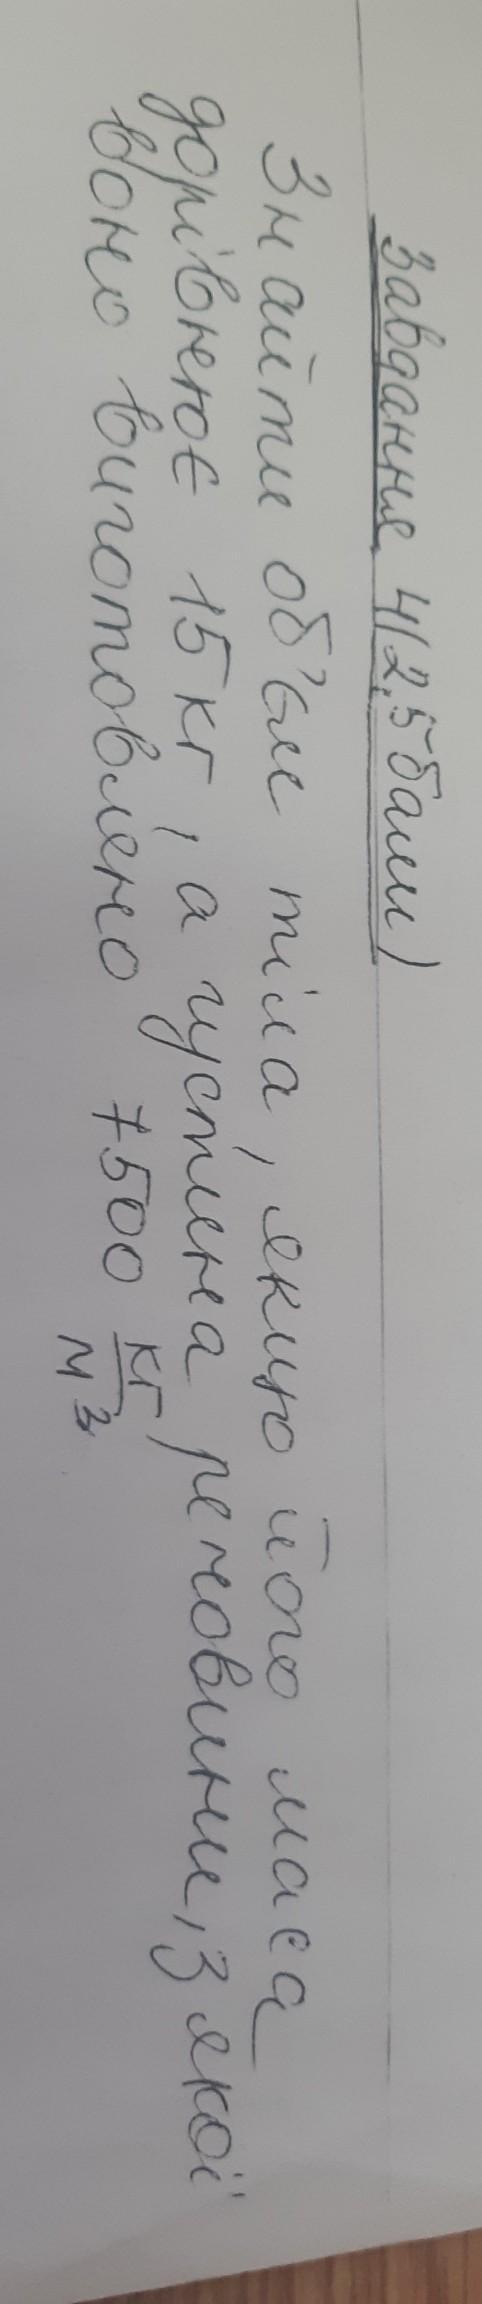 Завдання 4(2,5 бали)
Знайти об'єм тіла, якщо його маса
дорівнює 15 кг, а густина речовини, з якої
воно виготовлено 7500 кг/м³